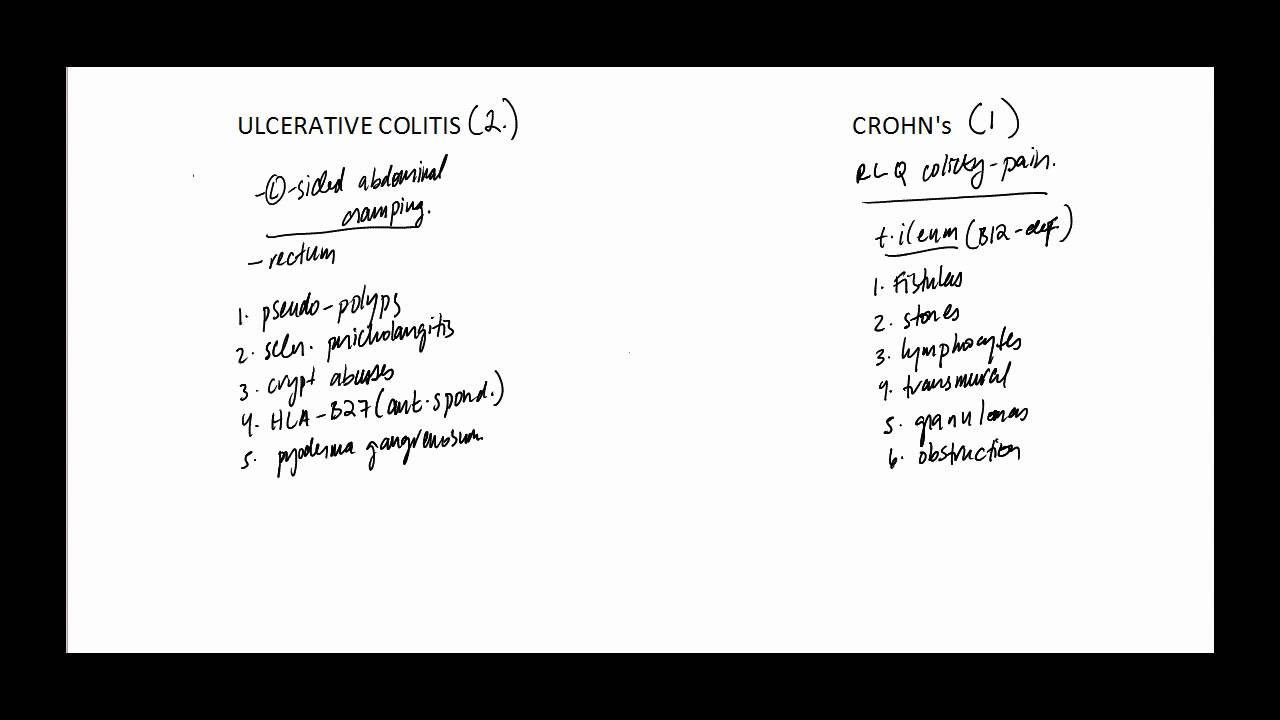 ULCERATIVE COLITIS (2.)
- Ⓛ-sided abdominal
cramping.
- rectum
1. pseudo-polyps
2. scler. pricholangitis
3. crypt abcsses
4. HLA-B27 (ant. spond.)
5. pyoderma gangrenosum.
CROHN's (1)
RLQ colicky-pain.
t. ileum (B12-def)
1. Fistulas
2. stones
3. lymphocytes
4. transmural
5. granulomas
6. obstruction